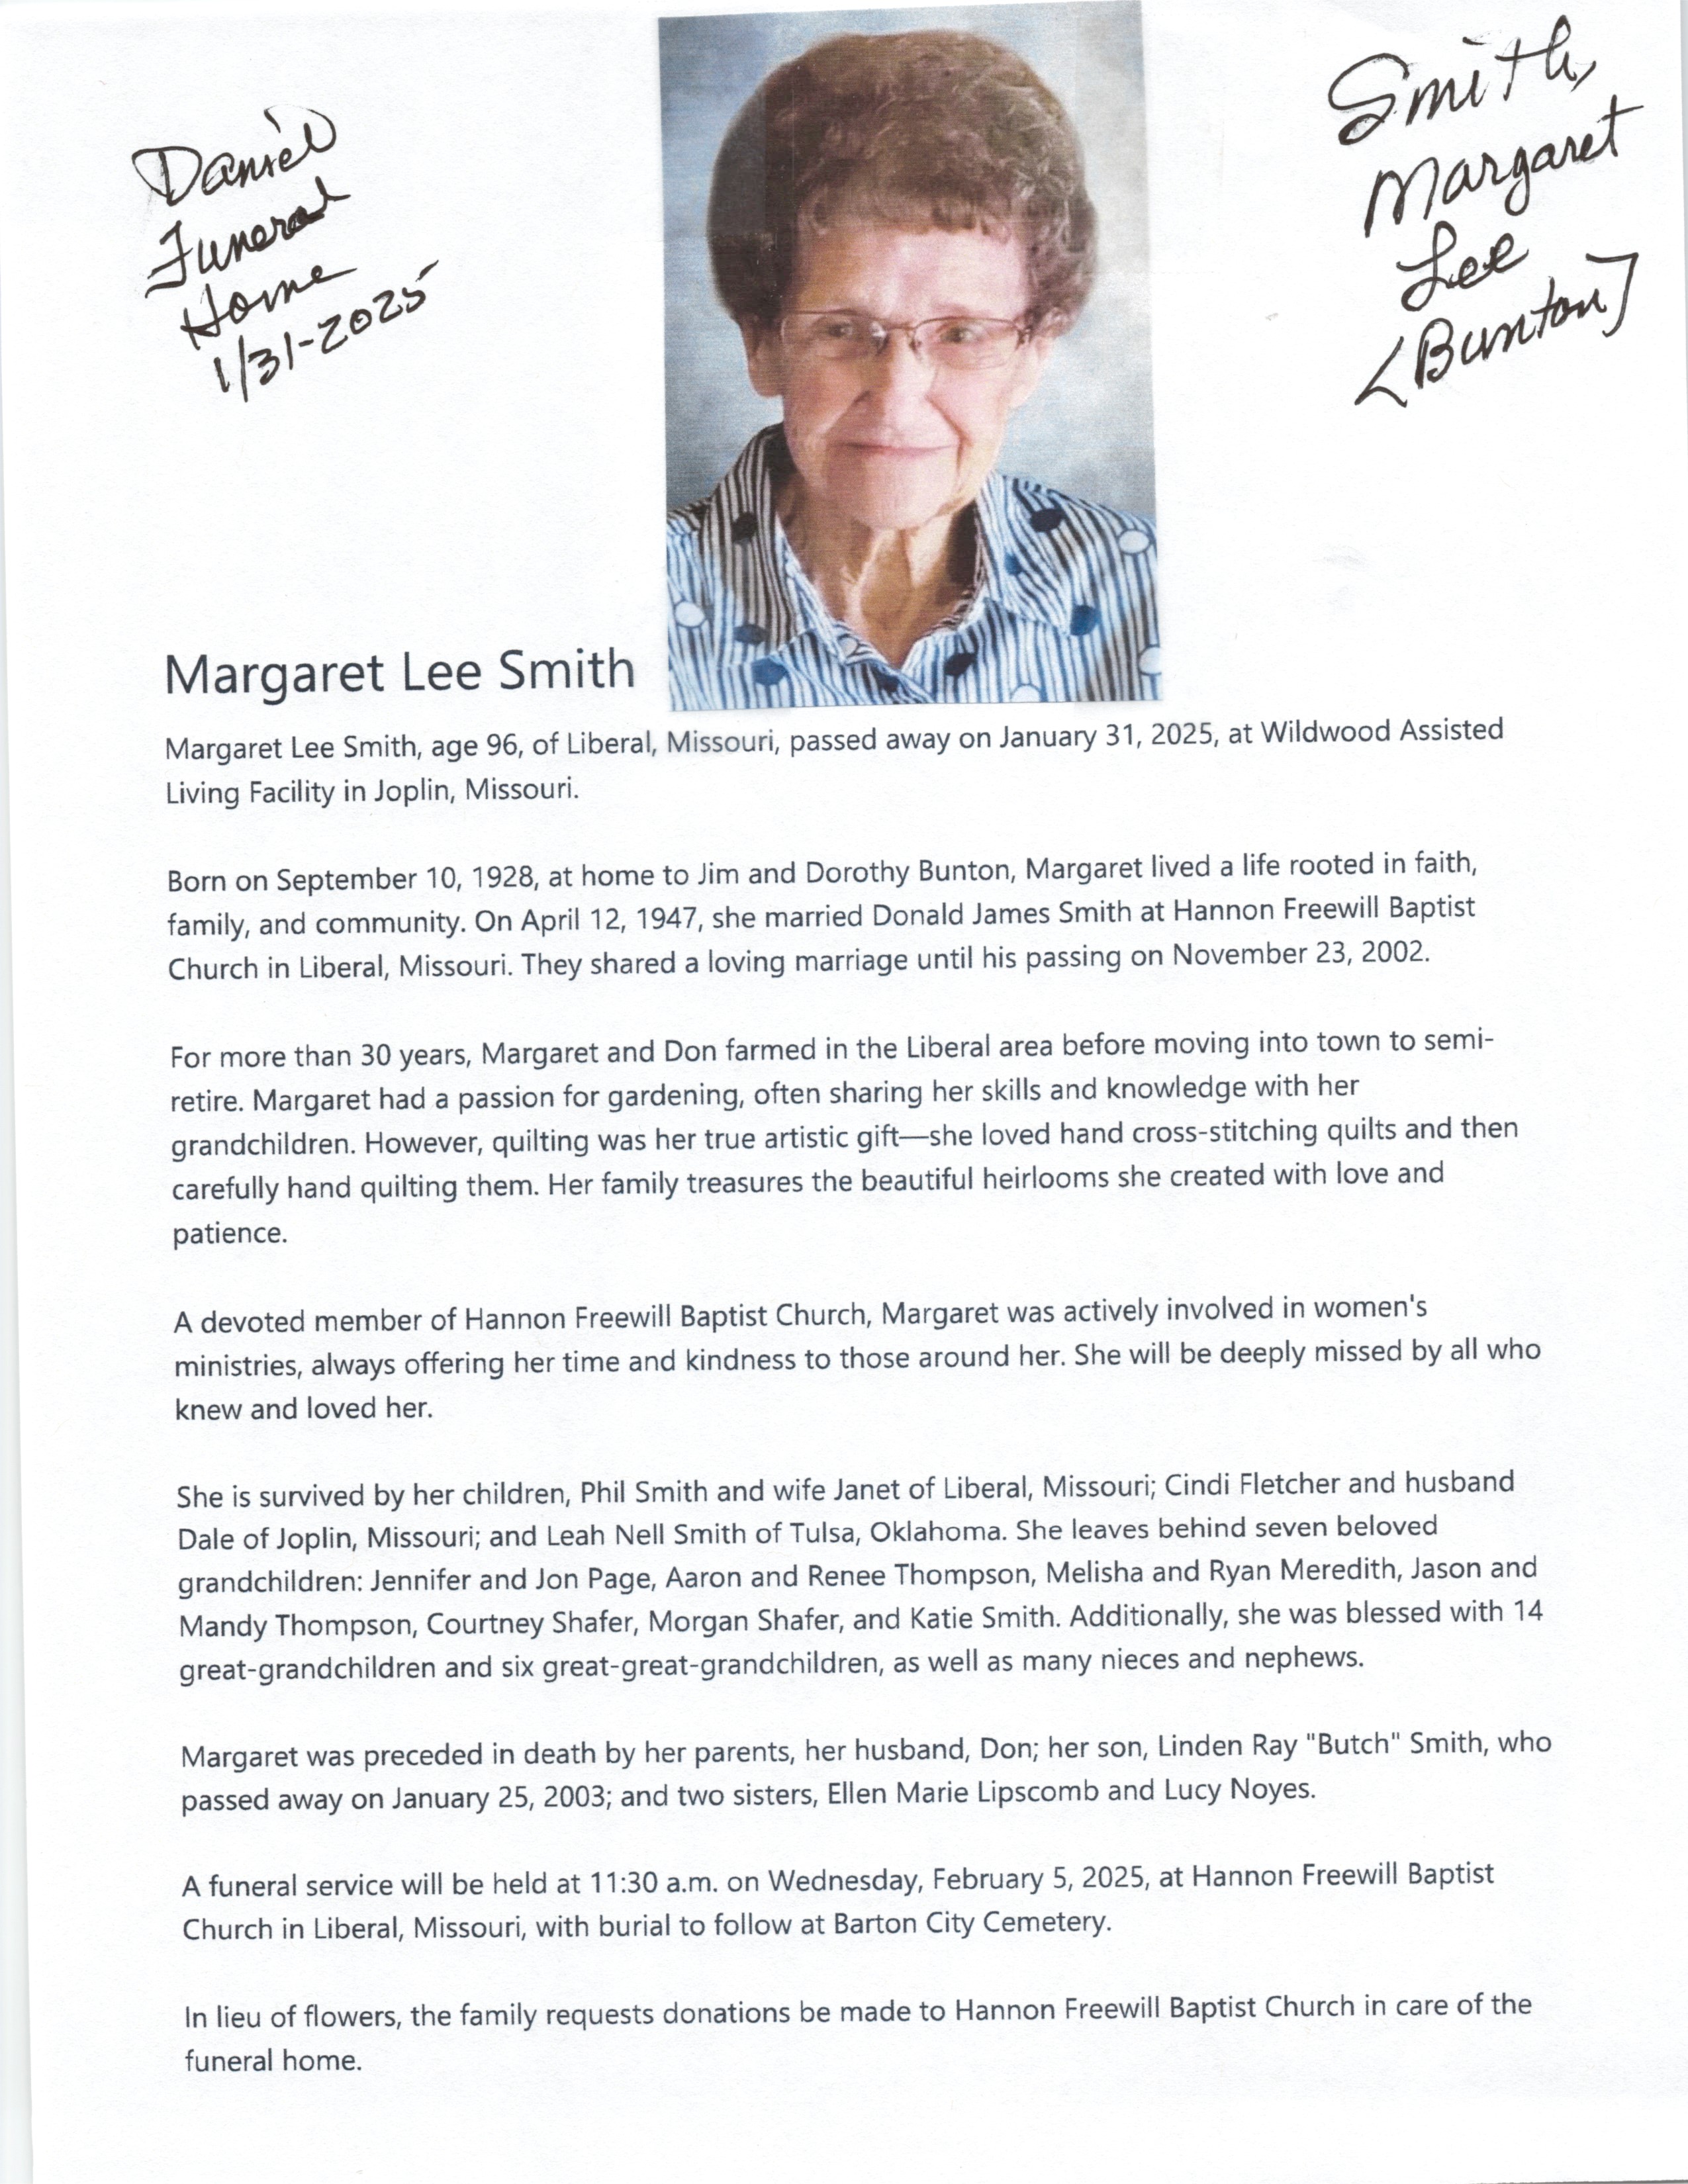 Daniel
Funeral
Home
1/31-2025
Smith,
Margaret
Lee
<Bunton]
Margaret Lee Smith
Margaret Lee Smith, age 96, of Liberal, Missouri, passed away on January 31, 2025, at Wildwood Assisted
Living Facility in Joplin, Missouri.
Born on September 10, 1928, at home to Jim and Dorothy Bunton, Margaret lived a life rooted in faith,
family, and community. On April 12, 1947, she married Donald James Smith at Hannon Freewill Baptist
Church in Liberal, Missouri. They shared a loving marriage until his passing on November 23, 2002.
For more than 30 years, Margaret and Don farmed in the Liberal area before moving into town to semi-
retire. Margaret had a passion for gardening, often sharing her skills and knowledge with her
grandchildren. However, quilting was her true artistic gift—she loved hand cross-stitching quilts and then
carefully hand quilting them. Her family treasures the beautiful heirlooms she created with love and
patience.
A devoted member of Hannon Freewill Baptist Church, Margaret was actively involved in women's
ministries, always offering her time and kindness to those around her. She will be deeply missed by all who
knew and loved her.
She is survived by her children, Phil Smith and wife Janet of Liberal, Missouri; Cindi Fletcher and husband
Dale of Joplin, Missouri; and Leah Nell Smith of Tulsa, Oklahoma. She leaves behind seven beloved
grandchildren: Jennifer and Jon Page, Aaron and Renee Thompson, Melisha and Ryan Meredith, Jason and
Mandy Thompson, Courtney Shafer, Morgan Shafer, and Katie Smith. Additionally, she was blessed with 14
great-grandchildren and six great-great-grandchildren, as well as many nieces and nephews.
Margaret was preceded in death by her parents, her husband, Don; her son, Linden Ray "Butch" Smith, who
passed away on January 25, 2003; and two sisters, Ellen Marie Lipscomb and Lucy Noyes.
A funeral service will be held at 11:30 a.m. on Wednesday, February 5, 2025, at Hannon Freewill Baptist
Church in Liberal, Missouri, with burial to follow at Barton City Cemetery.
In lieu of flowers, the family requests donations be made to Hannon Freewill Baptist Church in care of the
funeral home.